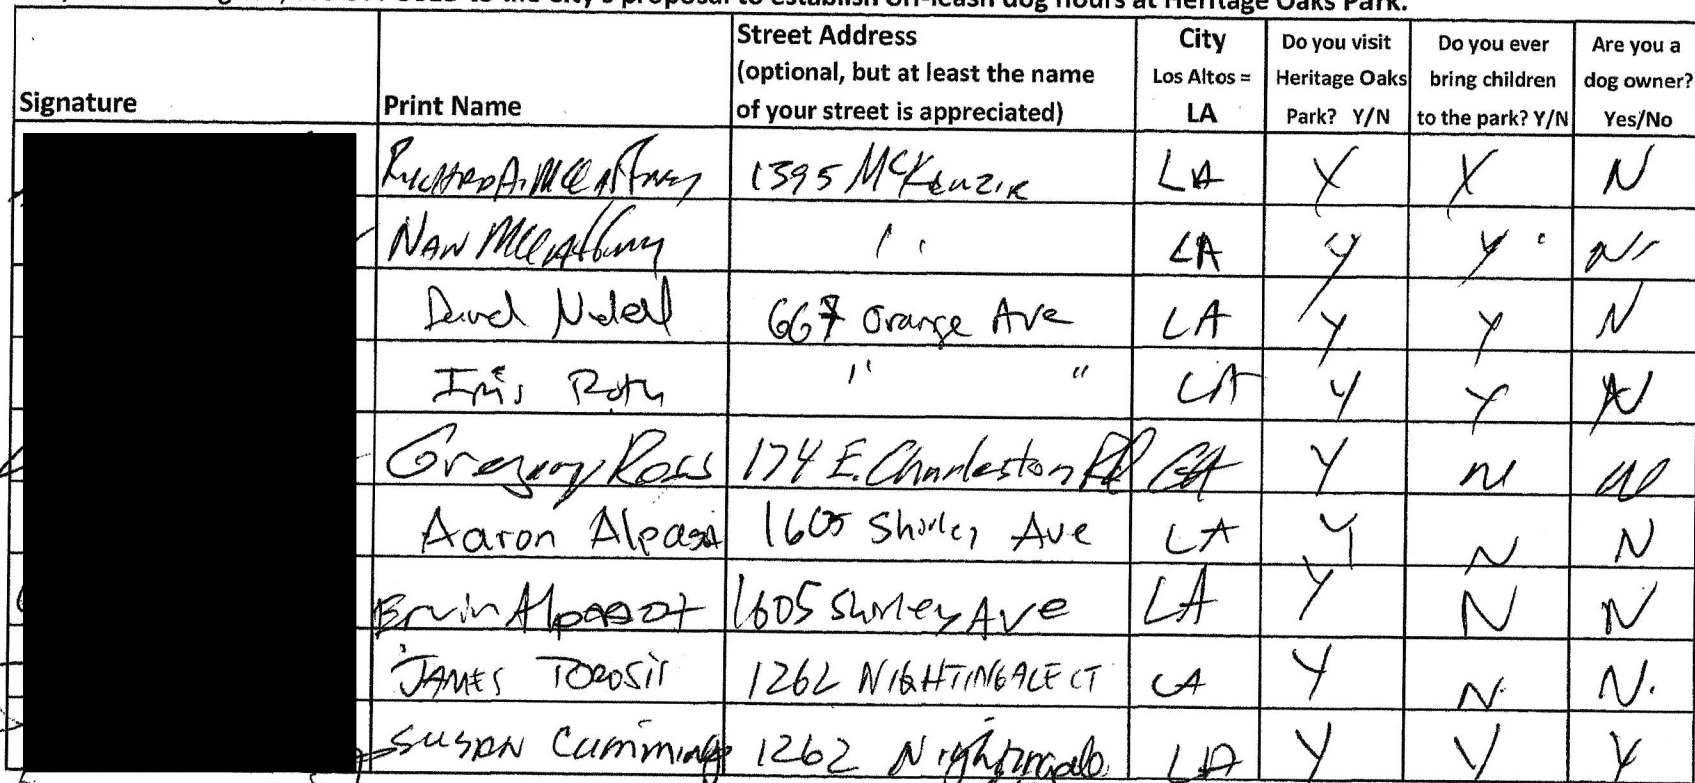 to the City's proposal to establish off-leash dog hours at Heritage Oaks Park.
Signature Print Name Street Address (optional, but at least the name of your street is appreciated) City Los Altos = LA Do you visit Heritage Oaks Park? Y/N Do you ever bring children to the park? Y/N Are you a dog owner? Yes/No
1395 McKenzie LA Y Y N
Nan " LA Y Y N
667 Orange Ave LA Y Y N
Iris Roth " " LA Y Y N
Gregory Ross 174 E. Charleston Rd Y N N
Aaron 1605 Shirley Ave LA Y N N
1605 Shirley Ave LA Y N N
JAMES 1262 NIGHTINGALE CT LA Y N. N.
SUSAN Cumming 1262 Nightingale LA Y Y Y